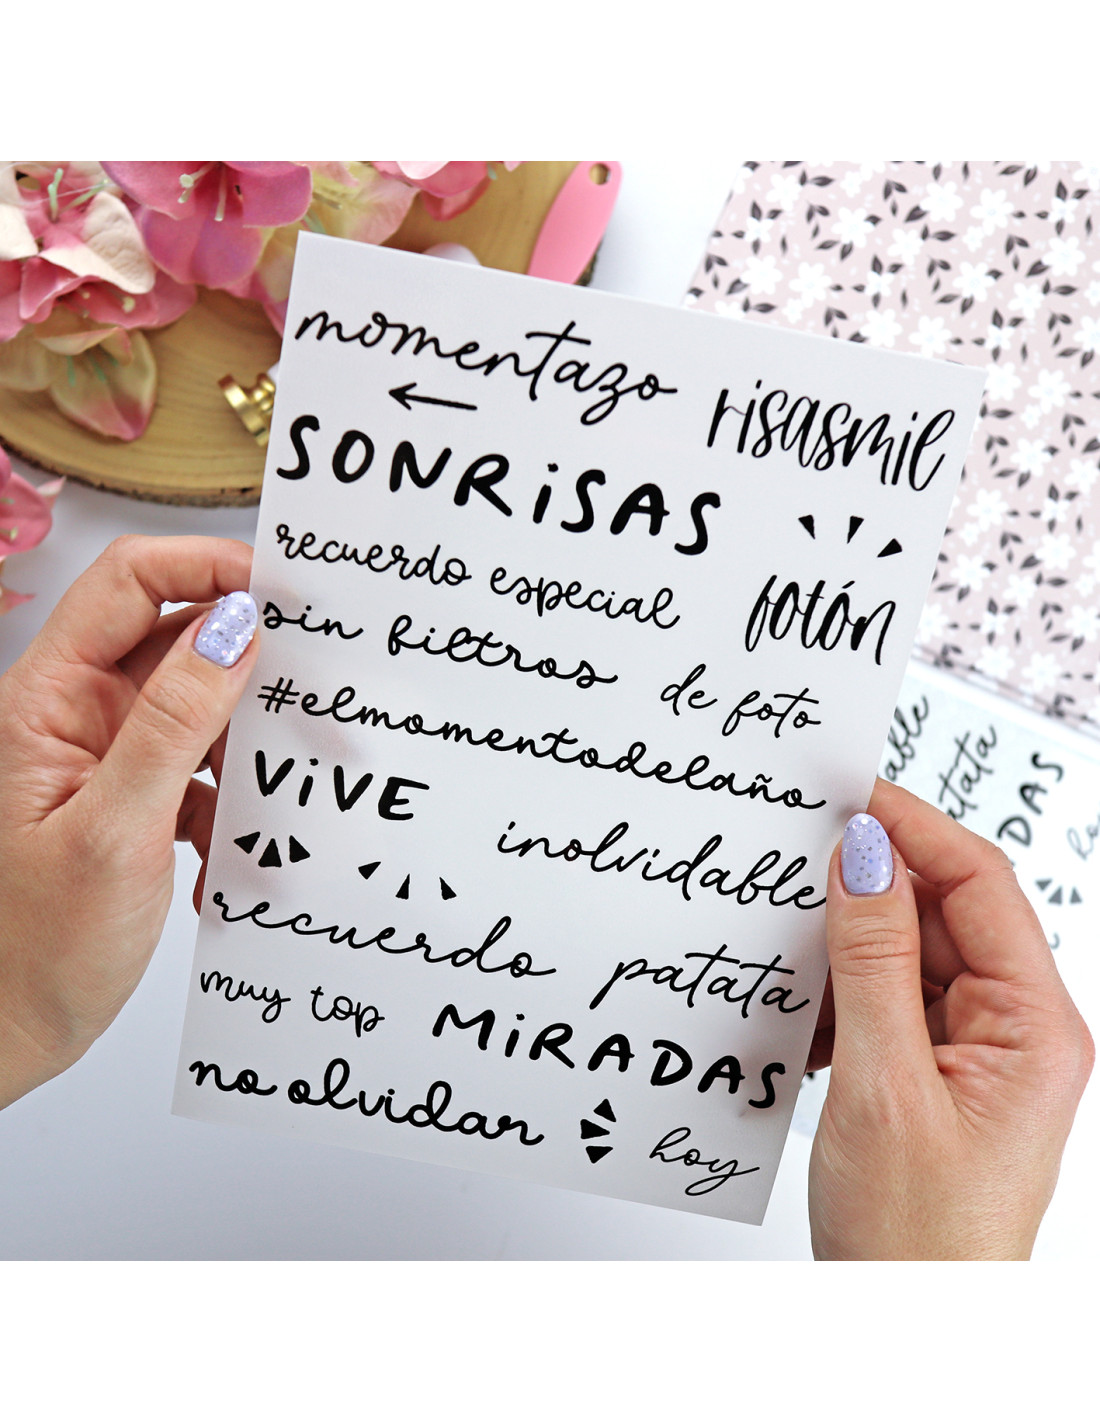 momentazo
risasmil
SONRiSAS
recuerdo especial
fotón
sin filtros
de foto
#elmomentodelaño
ViVE
inolvidable
recuerdo
patata
muy top
MiRADAS
no olvidar
hoy
patata